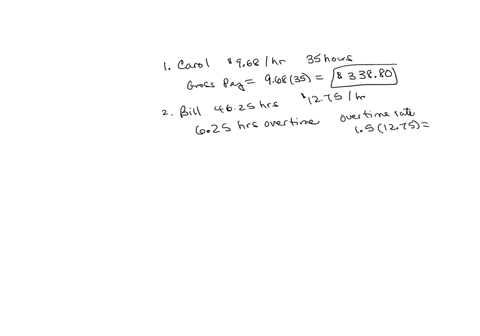 1. Carol $9.68/hr 35 hours
Gross Pay = 9.68(35) = $338.80
2. Bill 46.25 hrs $12.75/hr
6.25 hrs overtime overtime rate
1.5(12.75)=